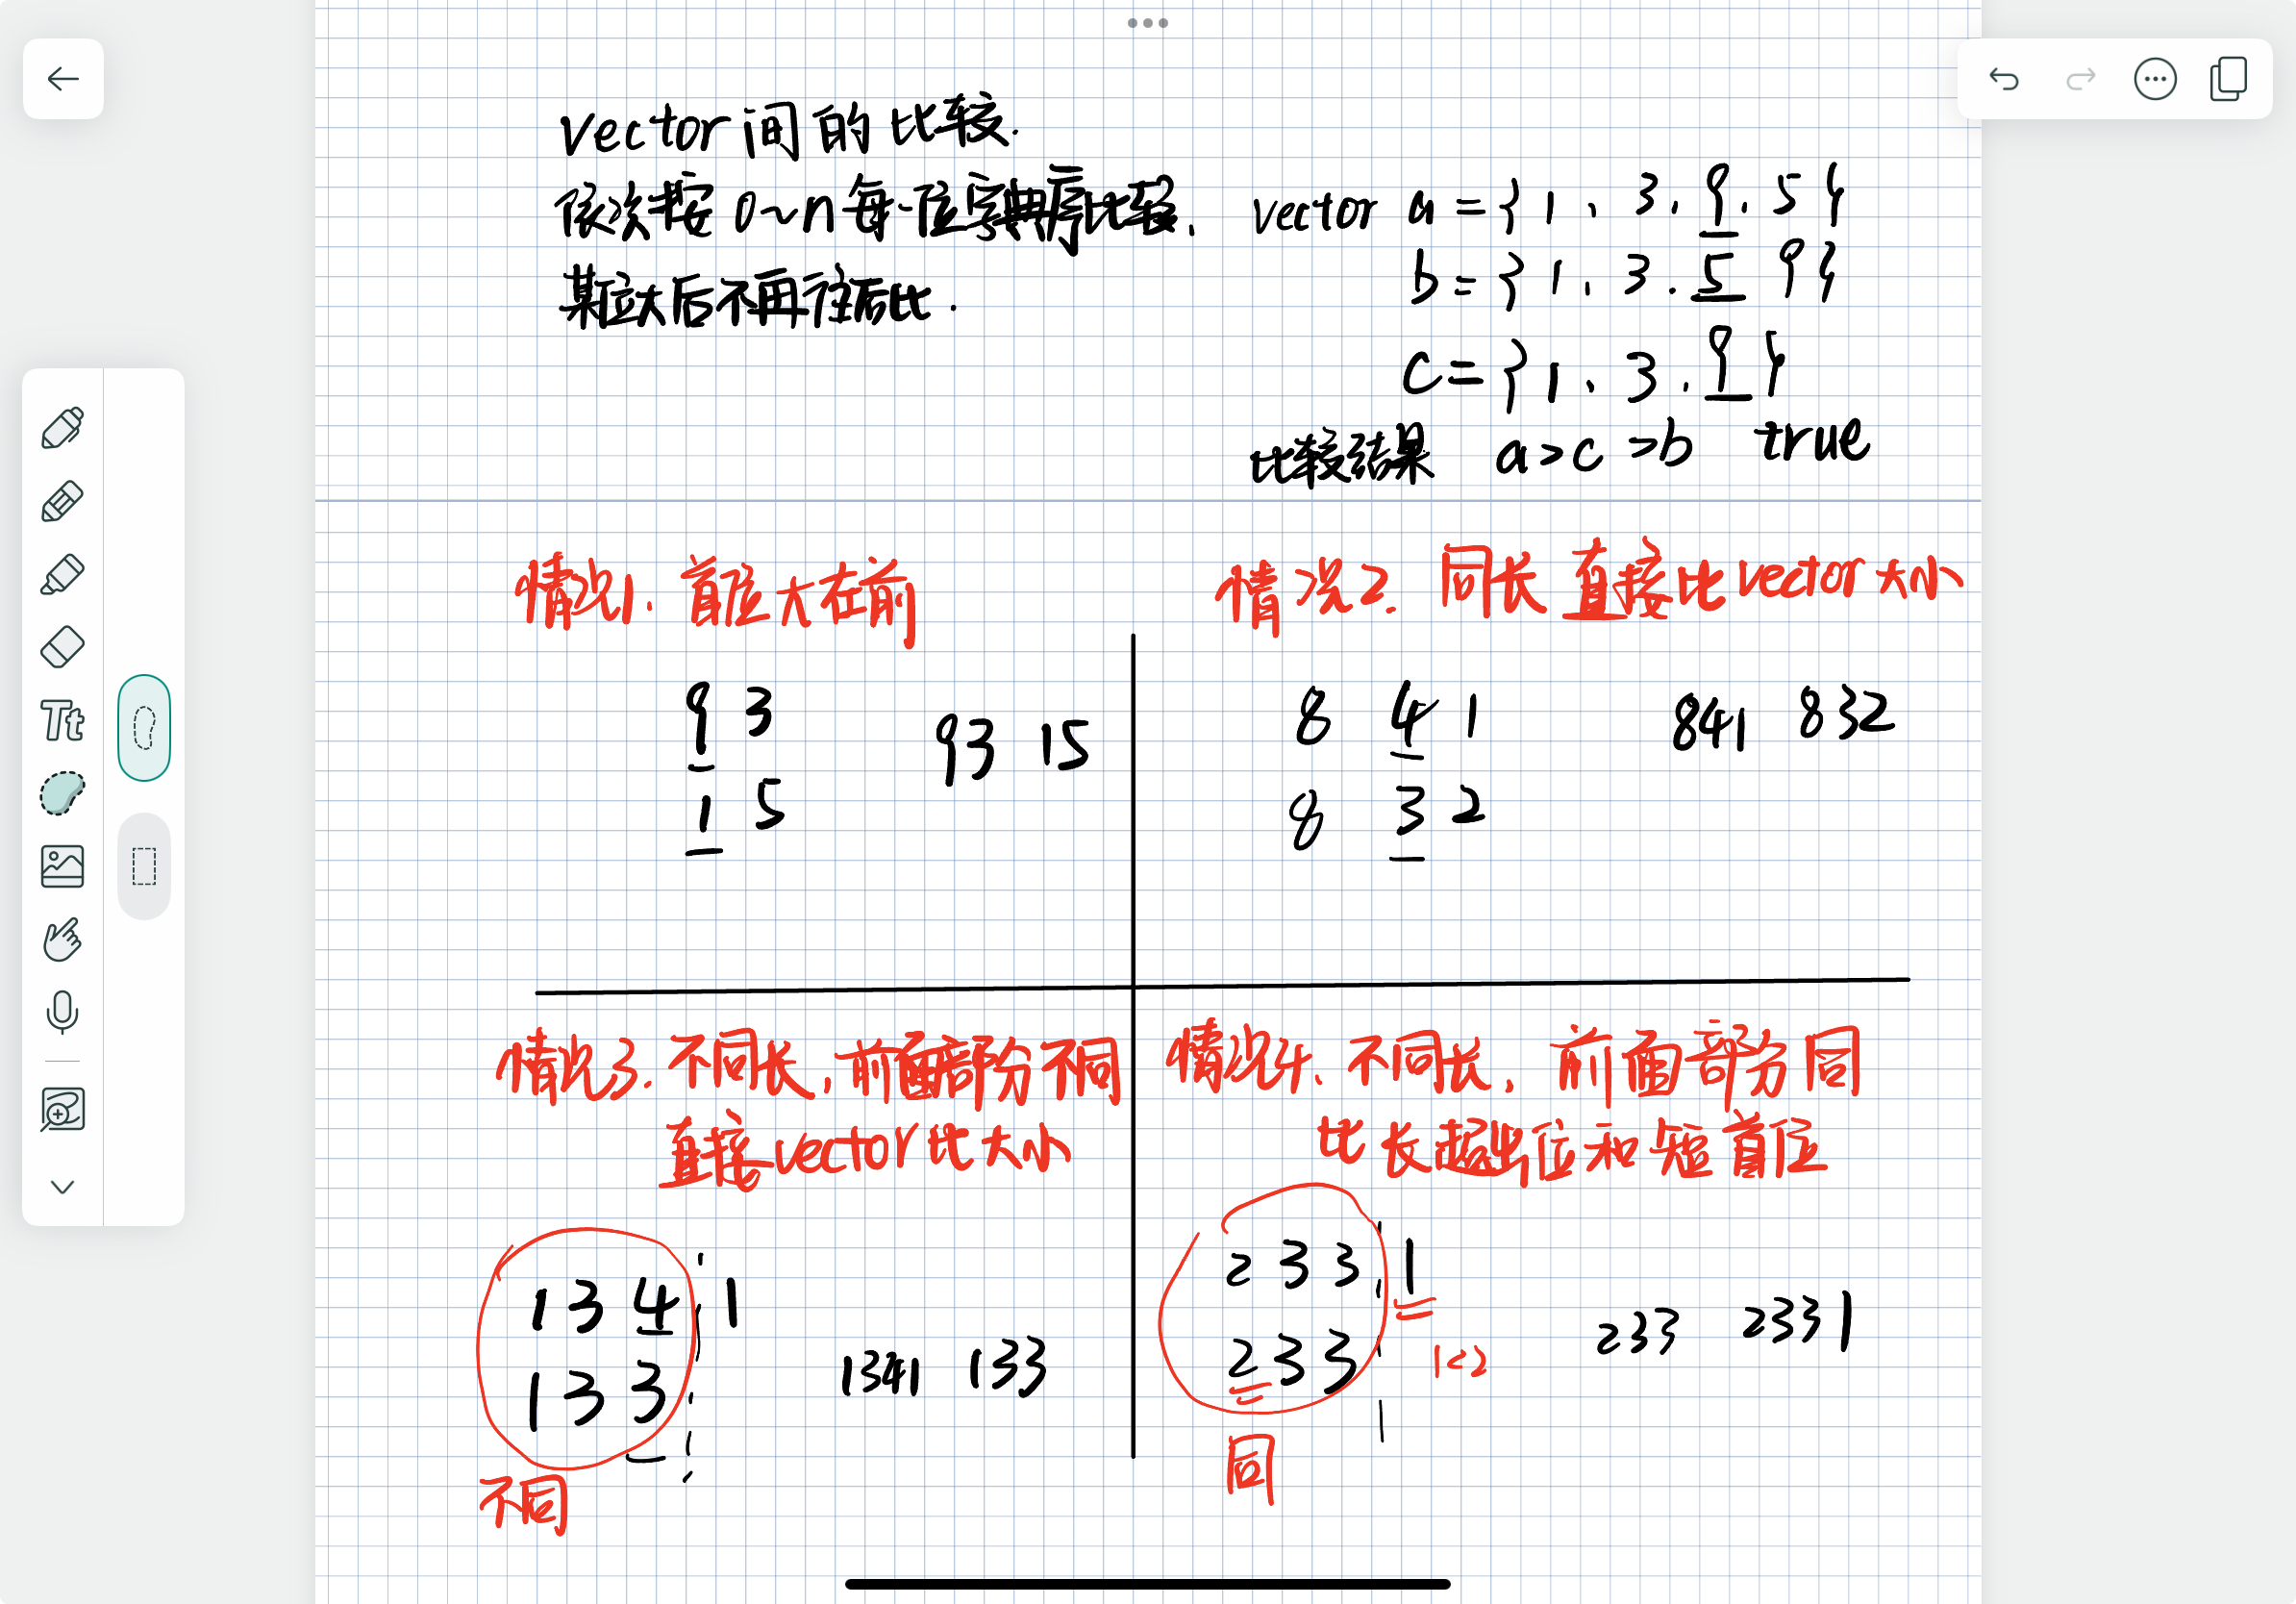 vector间的比较.
依次按 0~n每一位字典序比较.
某位大后不再往后比.
vector a={1、3.9.5}
b={1、3.5 9}
c={1、3.9}
比较结果 a>c>b true
情况1. 首位大在前
9 3
1 5
93 15
情况2. 同长 直接比vector大小
8 4 1
8 3 2
841 832
情况3. 不同长,前面部分不同
直接vector比大小
1 3 4 1
1 3 3
1341 133
不同
情况4、不同长,前面部分同
比长超出位和短首位
2 3 3 1
2 3 3
1<2
233 2331
同
Tt